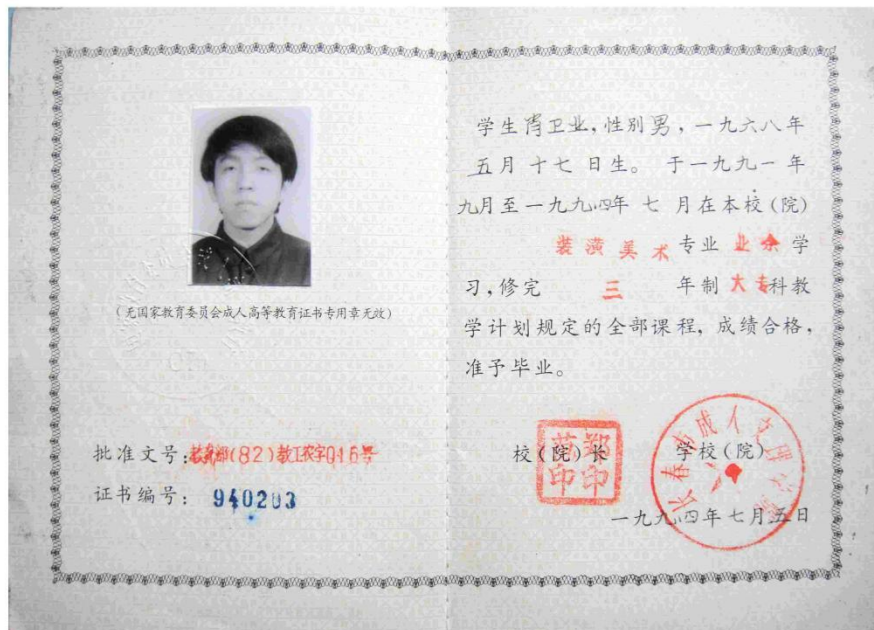 (无国家教育委员会成人高等教育证书专用章无效)
批准文号:教工农字016号
证书编号: 940203
学生肖卫业,性别男,一九六八年
五月十七日生。于一九九一年
九月至一九九四年七月在本校(院)
装潢美术专业业余学
习,修完 三 年制大专科教
学计划规定的全部课程,成绩合格,
准予毕业。
校(院)长
郑印
印
学校(院)
长春市成人文理学院
一九九四年七月五日